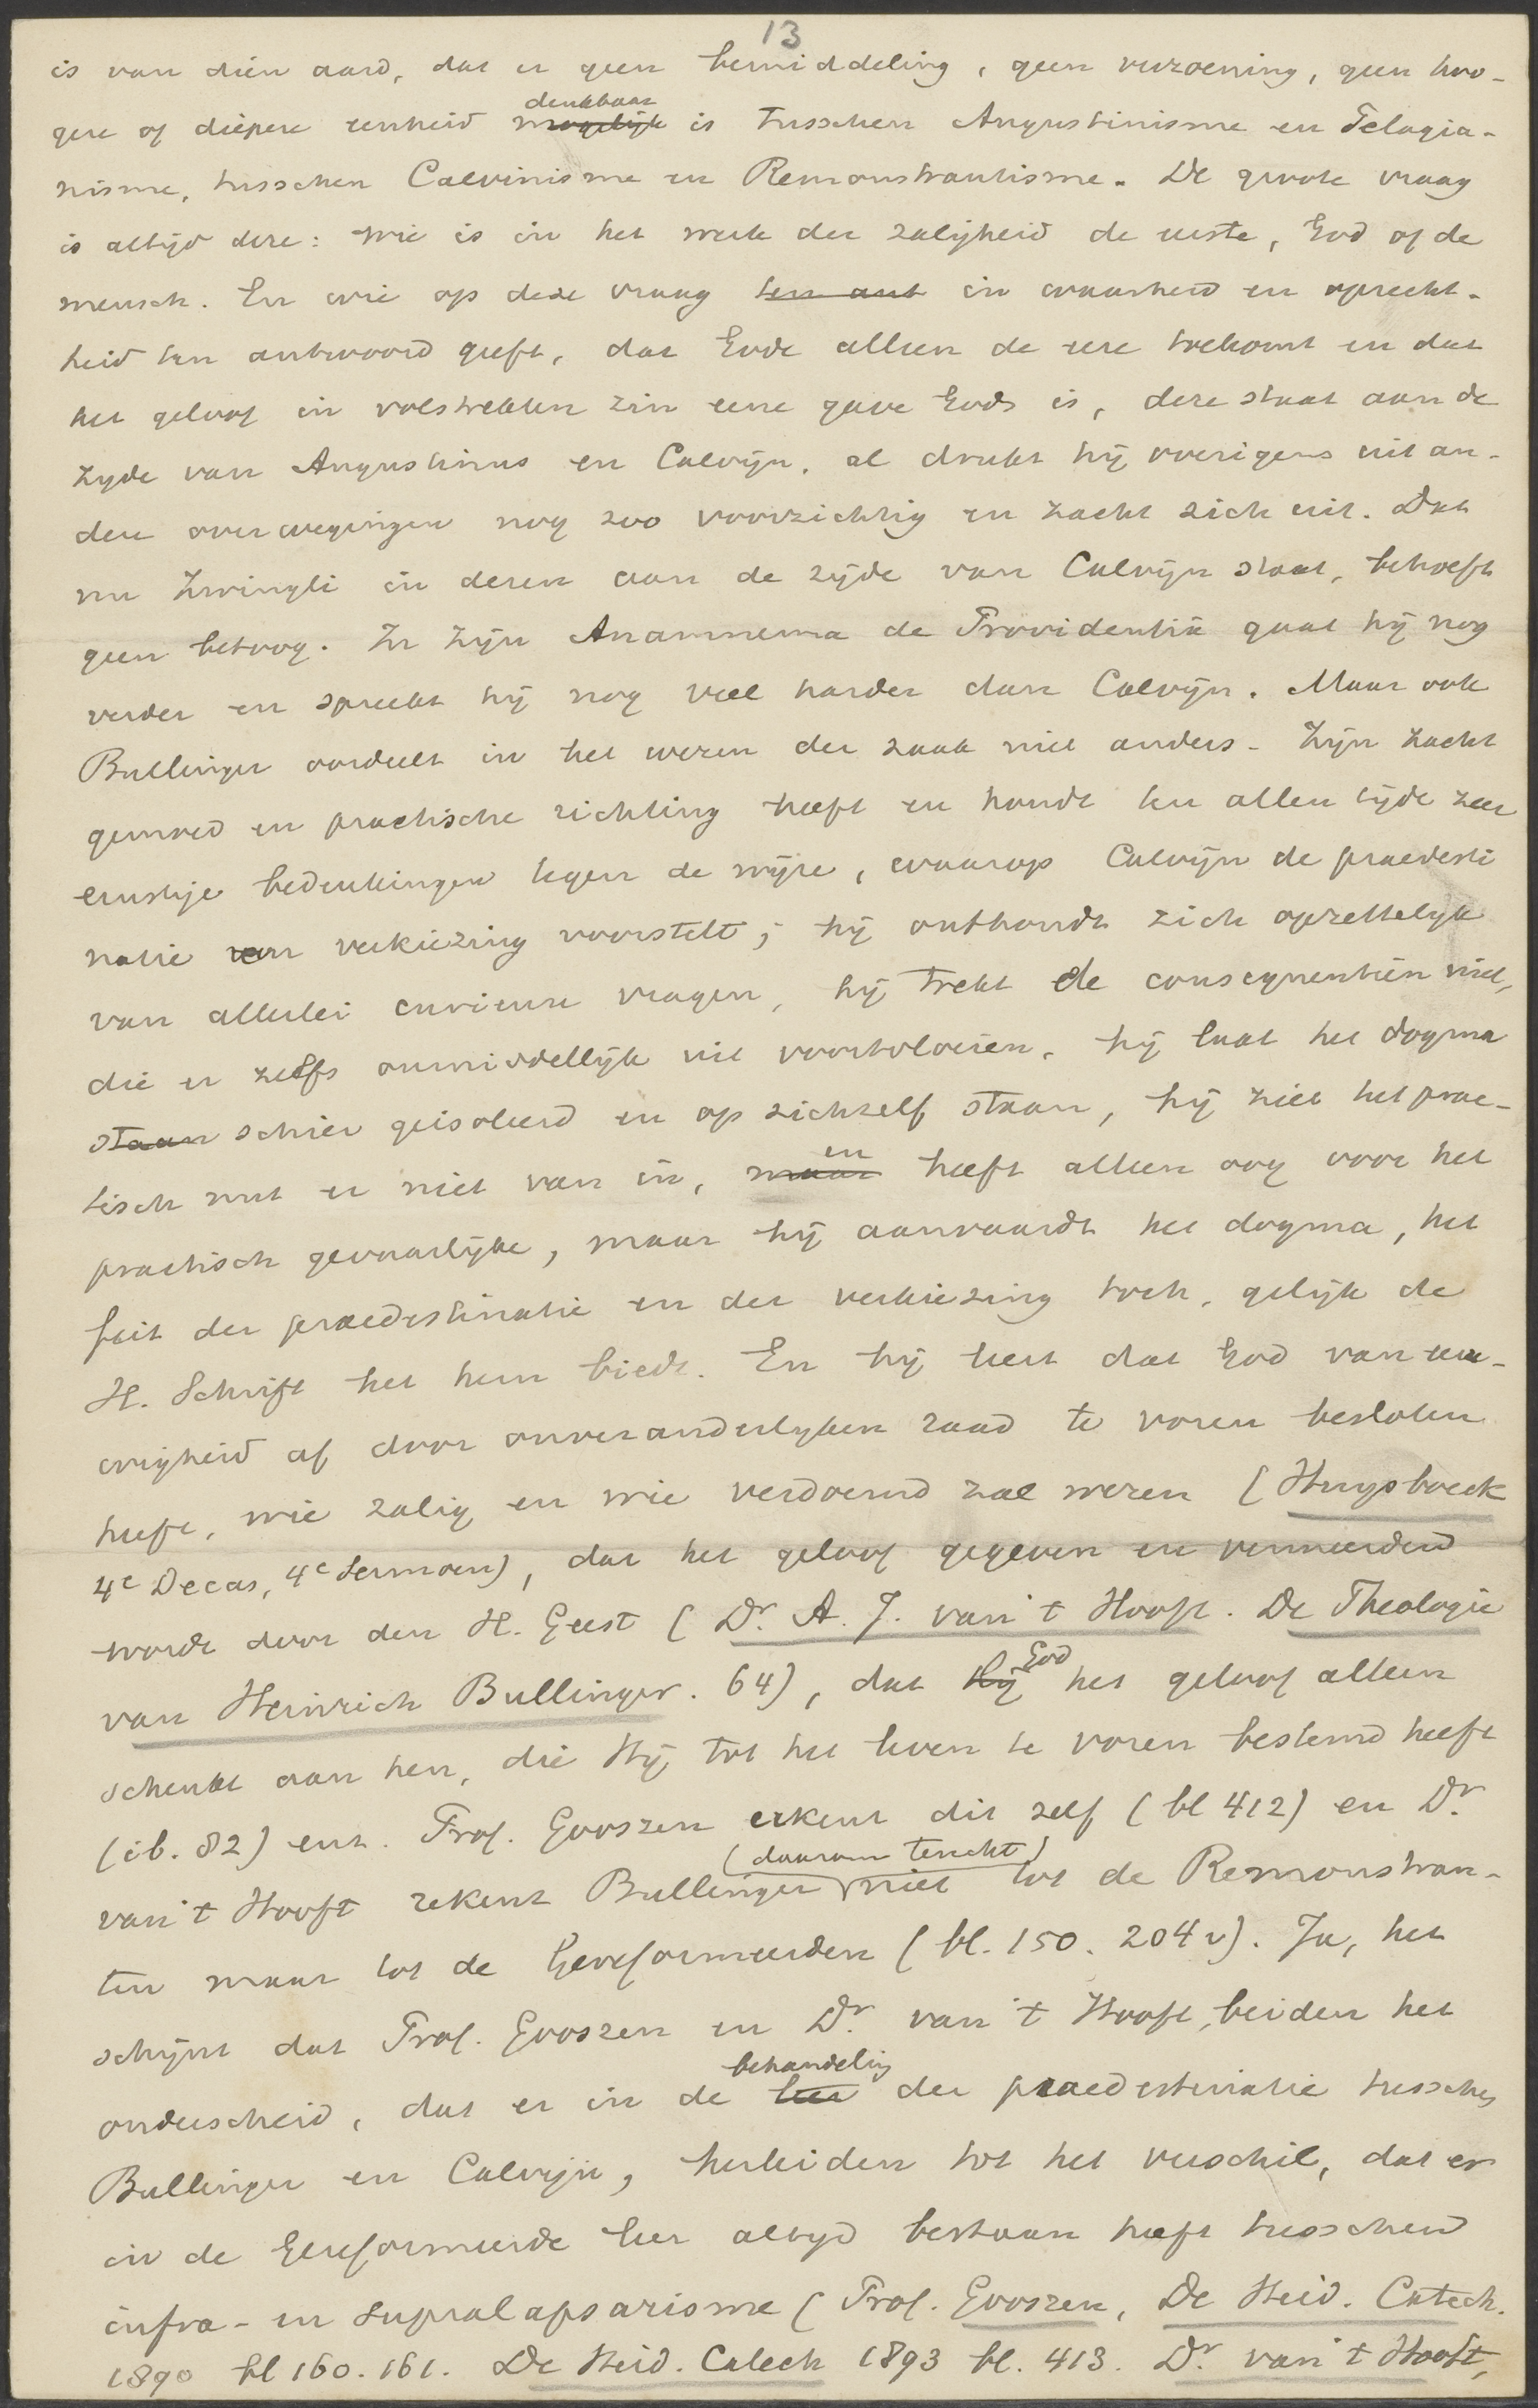 13
is van dien aard, dat er geen bemiddeling, geen verzoening, geen hoo-
gere of diepere eenheid mogelijk denkbaar is tusschen Augustinisme en Pelagia-
nisme, tusschen Calvinisme en Remonstrantisme. De groote vraag
is altijd deze: wie is in het werk der zaligheid de eerste, God of de
mensch. En wie op deze vraag ten ant in waarheid en oprecht-
heid ten antwoord geeft, dat Gode alleen de eere toekomt en dat
het geloof in volstrekten zin eene gave Gods is, deze staat aan de
zyde van Augustinus en Calvijn, al drukt hij overigens uit an-
dere overwegingen nog zoo voorzichtig en zacht zich uit. Dat
nu Zwingli in dezen aan de zijde van Calvijn staat, behoeft
geen betoog. In zijn Anamnema de Providentiâ gaat hij nog
verder en spreekt hij nog veel harder dan Calvijn. Maar ook
Bullinger oordeelt in het wezen der zaak niet anders. Zijn zacht
gemoed en practische richting heeft en houdt ten allen tijde zeer
ernstige bedenkingen tegen de wijze, waarop Calvijn de praedesti
natie en verkiezing voorstelt; hij onthoudt zich opzettelijk
van allerlei curieuse vragen, hij trekt de consequentiën niet,
die er zelfs onmiddellijk uit voortvloeien, hij laat het dogma
staan schier geisoleerd en op zichzelf staan, hij ziet het prac-
tisch nut er niet van in, maar en heeft alleen oog voor het
practisch gevaarlijke, maar hij aanvaardt het dogma, het
feit der praedestinatie en der verkiezing toch, gelijk de
H. Schrift het hem biedt. En hij leert dat God van eeu-
wigheid af door onveranderlyken raad te voren besloten
heeft, wie zalig en wie verdoemd zal wezen (Huysboeck
4e Decas, 4e Sermoen), dat het geloof gegeven en vermeerderd
wordt door den H. Geest (Dr. A. J. van 't Hooft. De Theologie
van Heinrich Bullinger. 64), dat hij God het geloof alleen
schenkt aan hen, die Hij tot het leven te voren bestemd heeft
(ib. 82) enz. Prof. Gooszen erkent dit zelf (bl 412) en Dr.
van 't Hooft rekent Bullinger (daarom terecht) niet tot de Remonstran-
ten maar tot de Gereformeerden (bl. 150. 204 v). Ja, het
schijnt dat Prof. Gooszen en Dr. van 't Hooft, beiden het
onderscheid, dat er in de leer behandeling der praedestinatie tusschen
Bullinger en Calvijn, herleiden tot het verschil, dat er
in de Gereformeerde leer altyd bestaan heeft tusschen
infra- en supralapsarisme (Prof. Gooszen, De Heid. Catech.
1890 bl 160. 161. De Heid. Catech 1893 bl. 413. Dr. van 't Hooft,